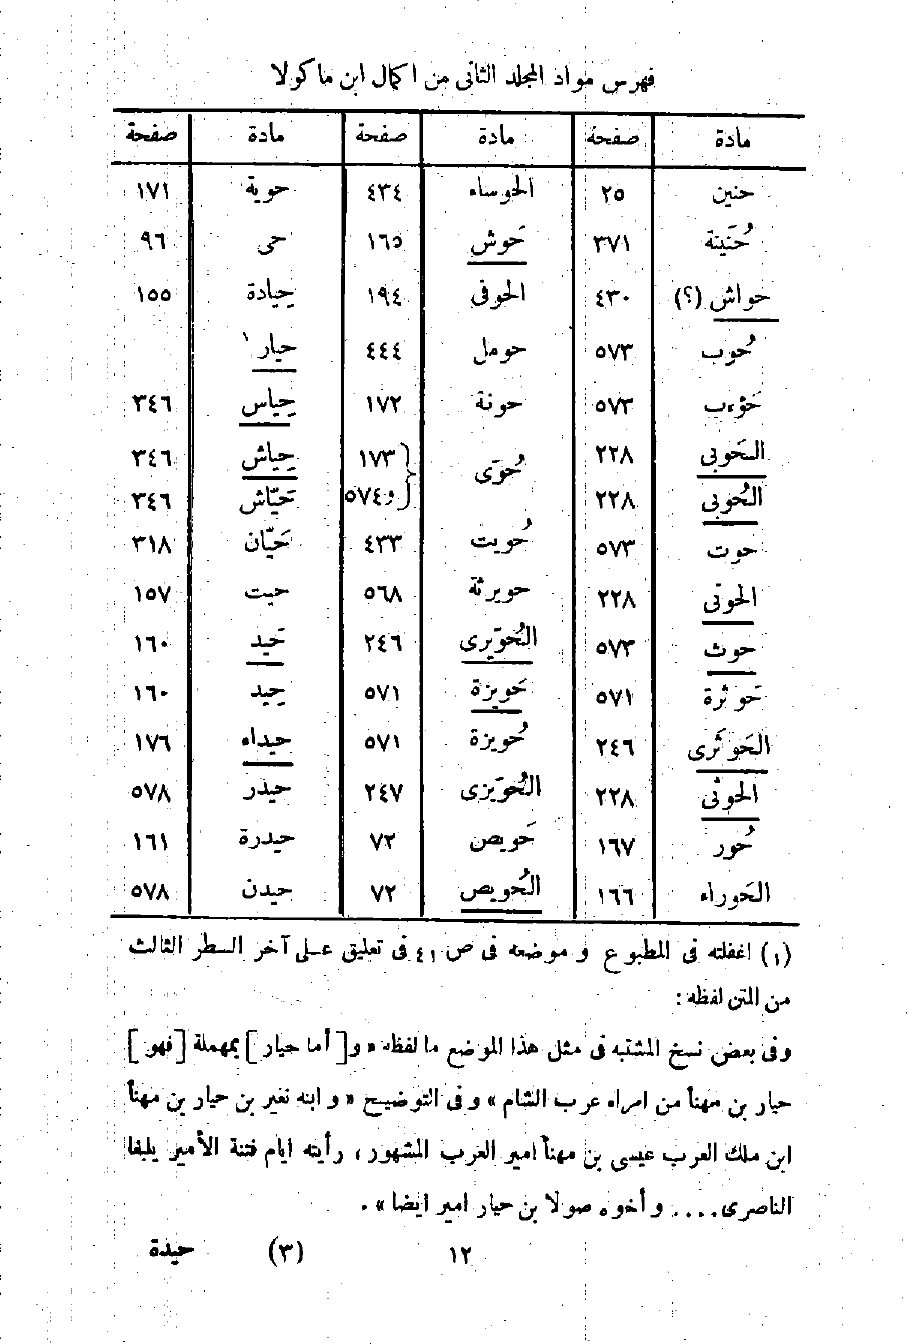 فهرس مواد المجلد الثانى من اكمال ابن ماكولا
مادة صفحة مادة صفحة مادة صفحة
حنين ٢٥ الحوساء ٤٣٤ حوية ١٧١
حُنَينة ٣٧١ حَوش ١٦٥ حى ٩٦
حواش (؟) ٤٣٠ الحوفى ١٩٤ حِيادة ١٥٥
حُوب ٥٧٣ حومل ٤٤٤ حيار ١
حَوْءب ٥٧٣ حونة ١٧٢ حِياس ٣٤٦
الحَوبى ٢٢٨ حُوَى ١٧٣ حِياش ٣٤٦
الحُوبى ٢٢٨ و ٥٧٤ حَيّاش ٣٤٦
حوت ٥٧٣ حُويت ٤٣٣ حَيّان ٣١٨
الحوتى ٢٢٨ حويرثة ٥٦٨ حيت ١٥٧
حوث ٥٧٣ الحُوَيرى ٢٤٦ حَيد ١٦٠
حَوثرة ٥٧١ حَويزة ٥٧١ حِيد ١٦٠
الحَوثَرى ٢٤٦ حُويزة ٥٧١ حيداء ١٧٦
الحوثى ٢٢٨ الحُوَيزى ٢٤٧ حيدر ٥٧٨
حُور ١٦٧ حَويص ٧٢ حيدرة ١٦١
الحَوراء ١٦٦ الحُويص ٧٢ حيدن ٥٧٨
(١) اغفلته فى المطبوع و موضعه فى ص ٤١ فى تعليق على آخر السطر الثالث
من المتن لفظه :
وفى بعض نسخ المشتبه فى مثل هذا الموضع ما لفظه « و [ أما حيار ] بمهملة [ فهو ]
حيار بن مهنأ من امراء عرب الشام » و فى التوضيح « و ابنه نعير بن حيار بن مهنأ
ابن ملك العرب عيسى بن مهنأ امير العرب المشهور ، رأيته ايام فتنة الأمير يلبغا
الناصرى .... و أخوه صولا بن حيار امير ايضا » .
١٢ (٣) حيدة